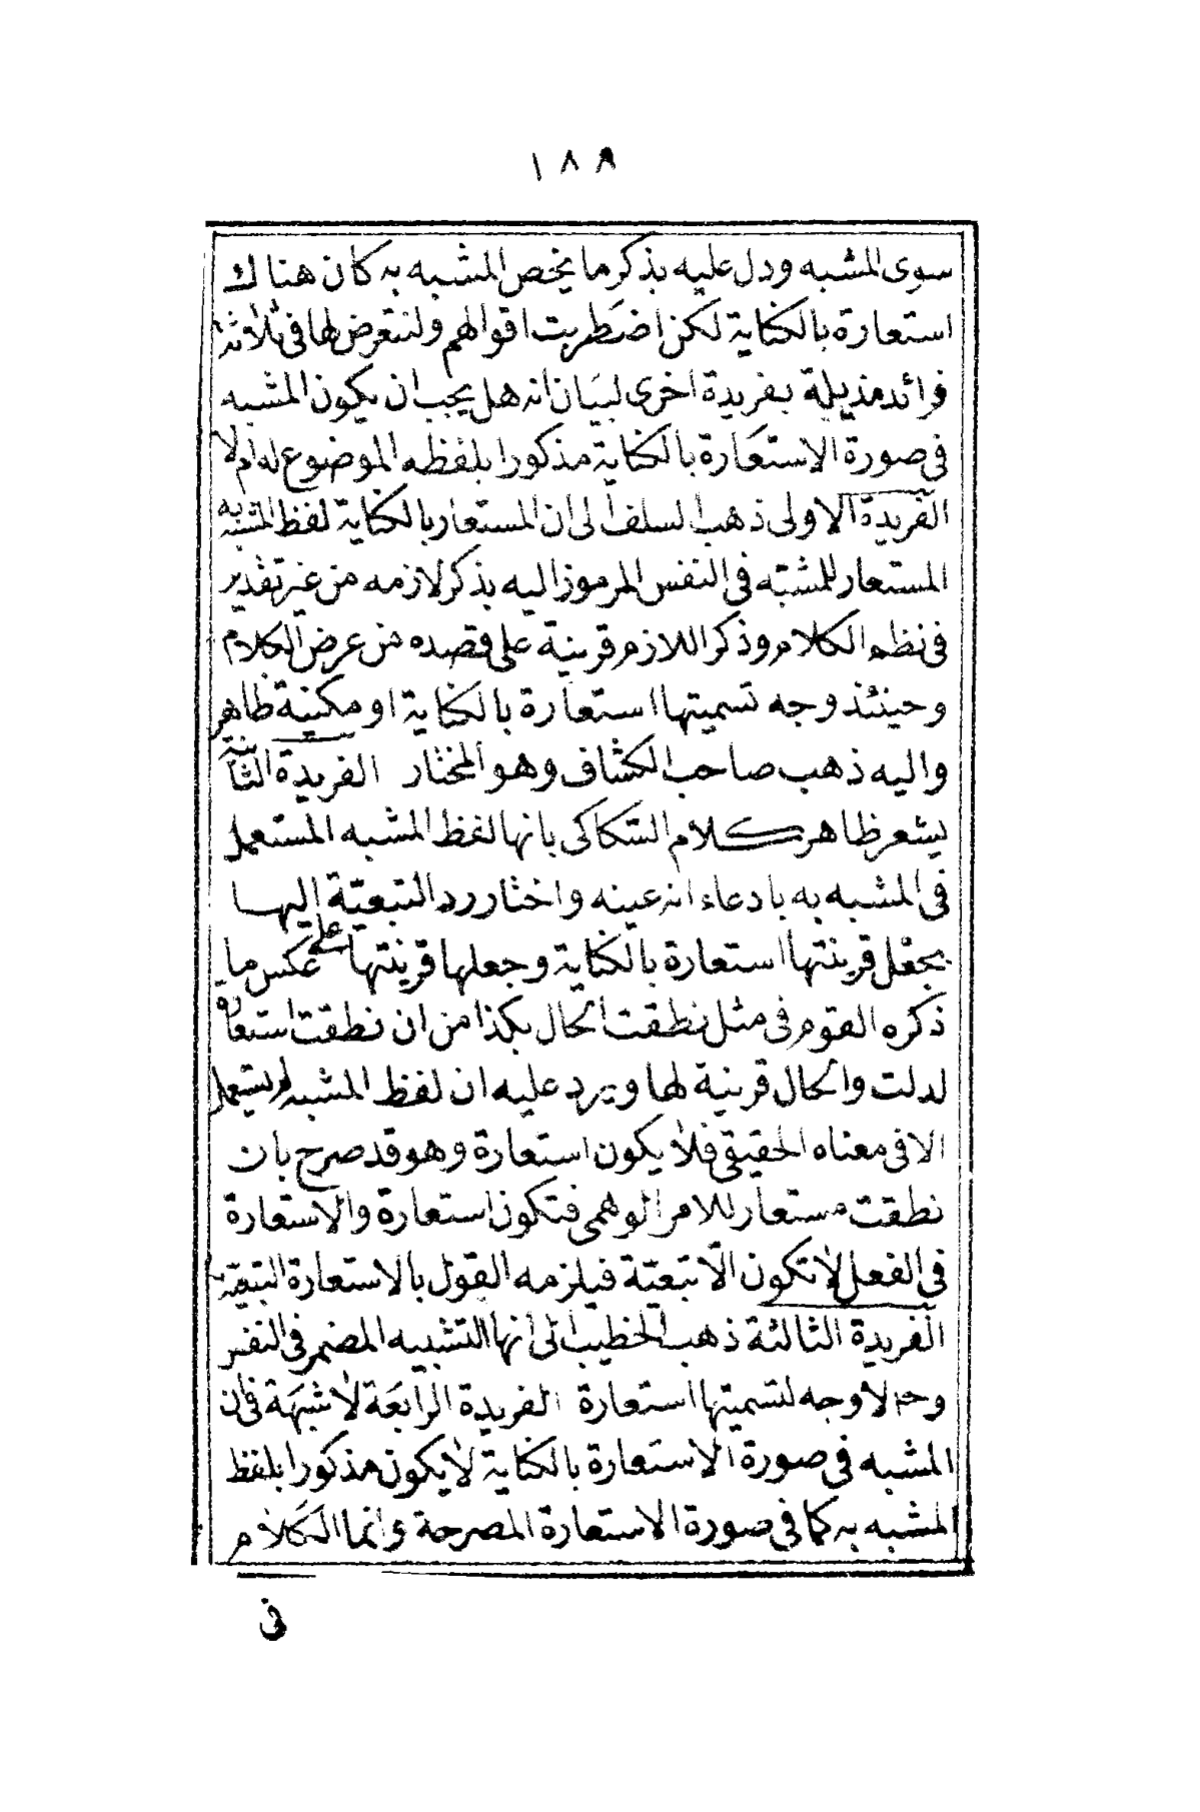 ١٨٨
سوى المشبه ودل عليه بذكر ما يخص المشبه به كان هناك
استعارة بالكناية لكن اضطربت اقوالهم ولنتعرض لها فى ثلاثة
فرائد مذيلة بفريدة اخرى لبيان انه هل يجب ان يكون المشبه
فى صورة الاستعارة بالكناية مذكورا بلفظه الموضوع له ام لا
الفريدة الاولى ذهب السلف الى ان المستعار بالكناية لفظ المشبه به
المستعار للمشبه فى النفس المرموز اليه بذكر لازمه من غير تقدير
فى نظم الكلام وذكر اللازم قرينة على قصده من عرض الكلام
وحينئذ وجه تسميتها استعارة بالكناية او مكنية ظاهر
واليه ذهب صاحب الكشاف وهو المختار الفريدة الثانية
يشعر ظاهر كلام السكاكى بانها لفظ المشبه المستعمل
فى المشبه به بادعاء انه عينه واختار رد التبعيّة اليها
بجعل قرينتها استعارة بالكناية وجعلها قرينتها على عكس ما
ذكره القوم فى مثل نطقت الحال بكذا من ان نطقت استعارة
لدلت والحال قرينة لها ويرد عليه ان لفظ المشبه لم يستعمل
الا فى معناه الحقيقى فلا يكون استعارة وهو قد صرح بان
نطقت مستعار للامر الوهمى فتكون استعارة والاستعارة
فى الفعل لا تكون الّا تبعيّة فيلزمه القول بالاستعارة التبعية
الفريدة الثالثة ذهب الخطيب الى انها التشبيه المضمر فى النفس
وح لا وجه لتسميتها استعارة الفريدة الرابعة لا شبهة فى ان
المشبه فى صورة الاستعارة بالكناية لا يكون مذكورا بلفظ
المشبه به كما فى صورة الاستعارة المصرحة وانما الكلام
فى